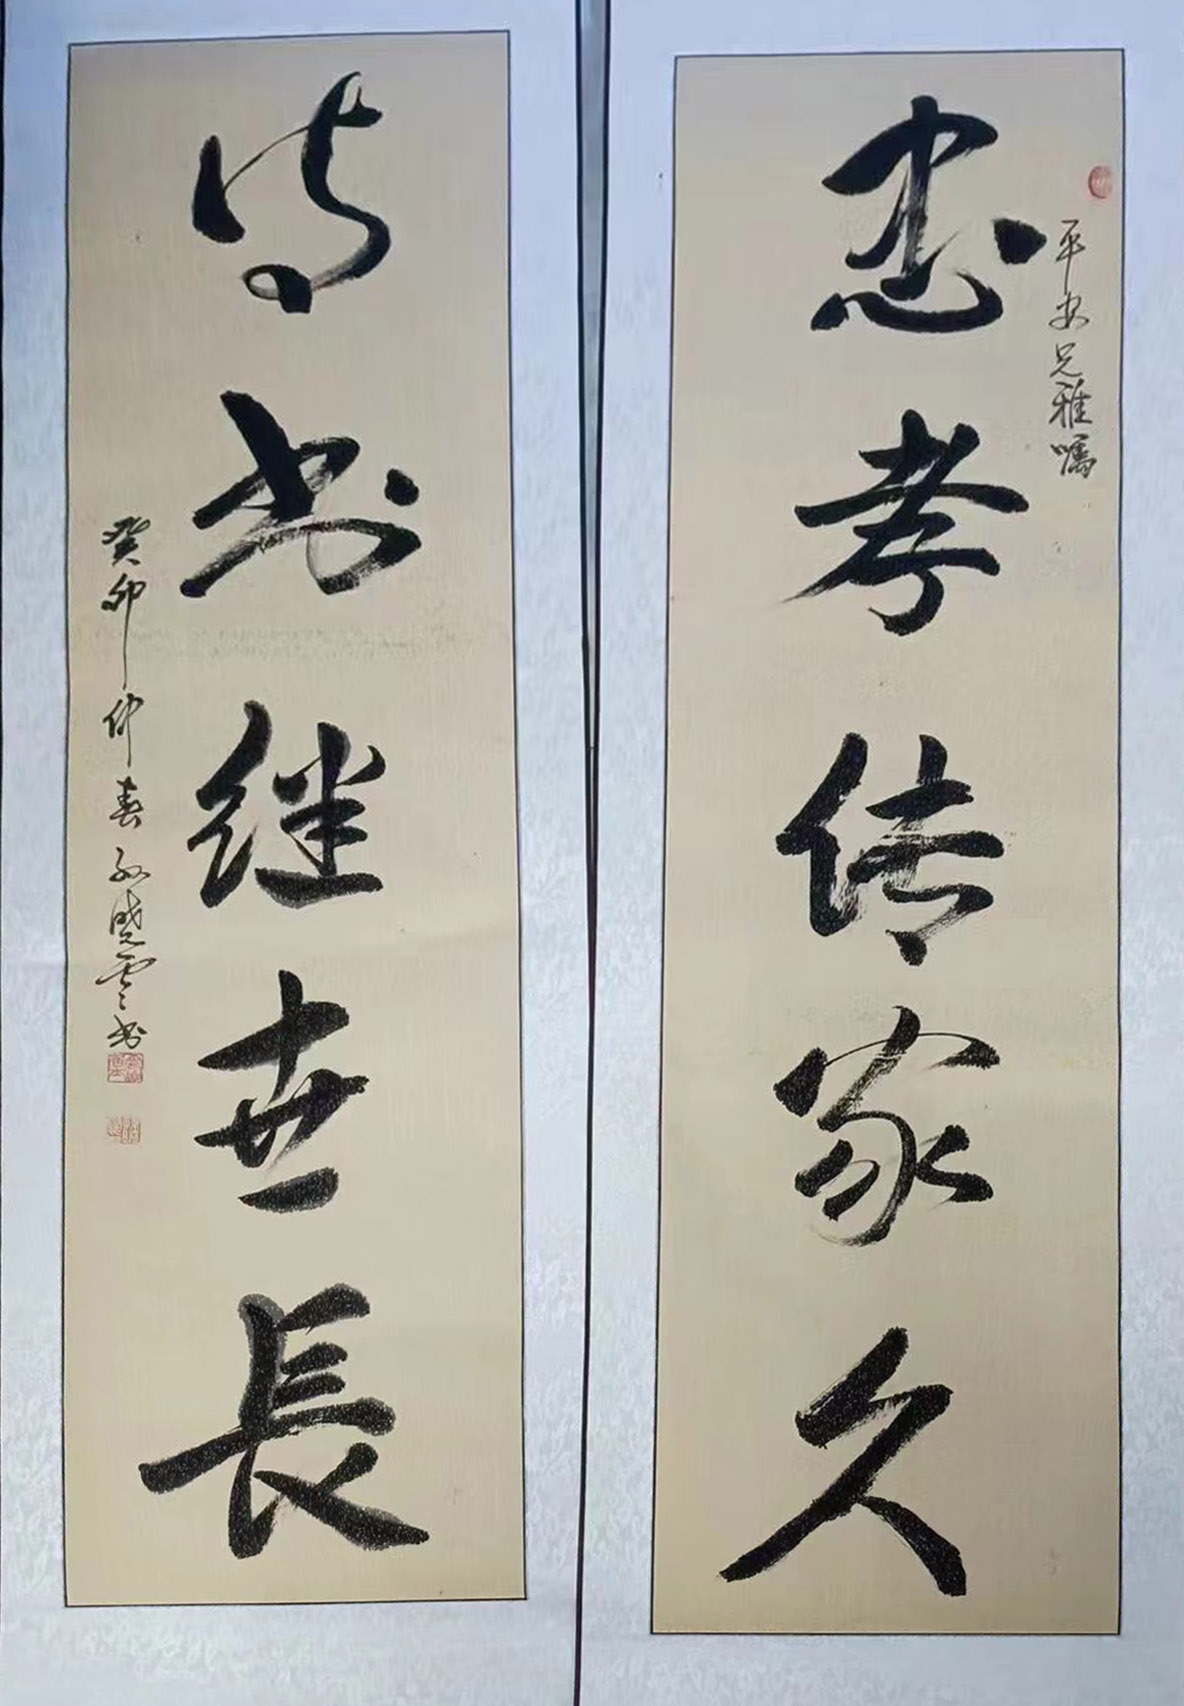 平安兄雅嘱
忠孝传家久
诗书继世長
癸卯仲春孙晓云书